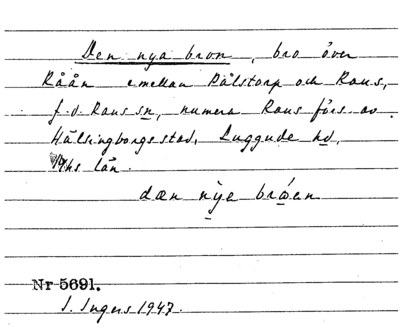 Den nya bron, bro över
Råån emellan Pålstorp och Raus,
f.d. Raus sn, numera Raus förs. av
Hälsingborgs stad, Luggude hd,
Mhs län.
dæn nỳa bróen
Nr 5691.
I. Ingers 1947.